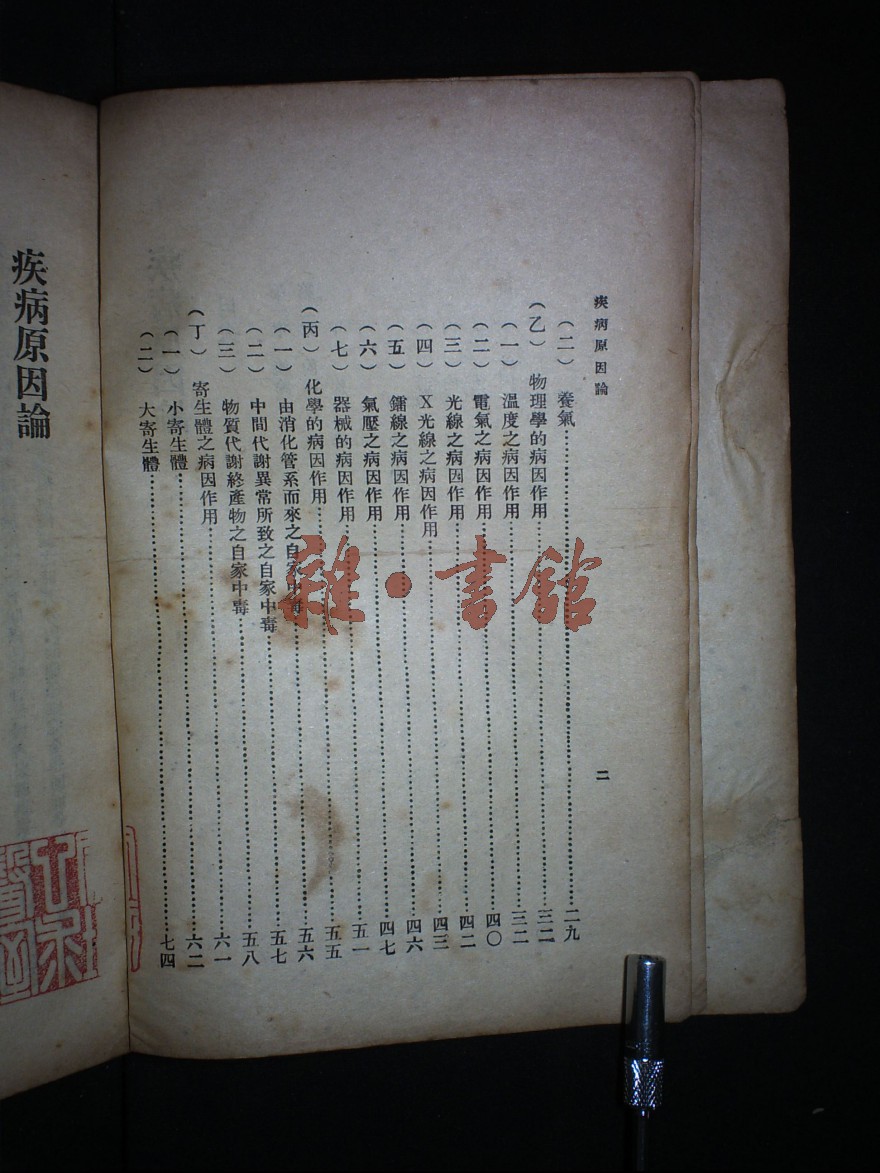 疾病原因論
二
(二) 養氣……二九
(乙) 物理學的病因作用……三二
(一) 溫度之病因作用……三二
(二) 電氣之病因作用……四〇
(三) 光線之病因作用……四二
(四) X光線之病因作用……四三
(五) 鐳線之病因作用……四六
(六) 氣壓之病因作用……四七
(七) 器械的病因作用……五一
(丙) 化學的病因作用……五五
(一) 由消化管系而來之自家中毒……五六
(二) 中間代謝異常所致之自家中毒……五七
(三) 物質代謝終產物之自家中毒……五八
(丁) 寄生體之病因作用……六一
(一) 小寄生體……六二
(二) 大寄生體……七四
疾病原因論
雜·書館